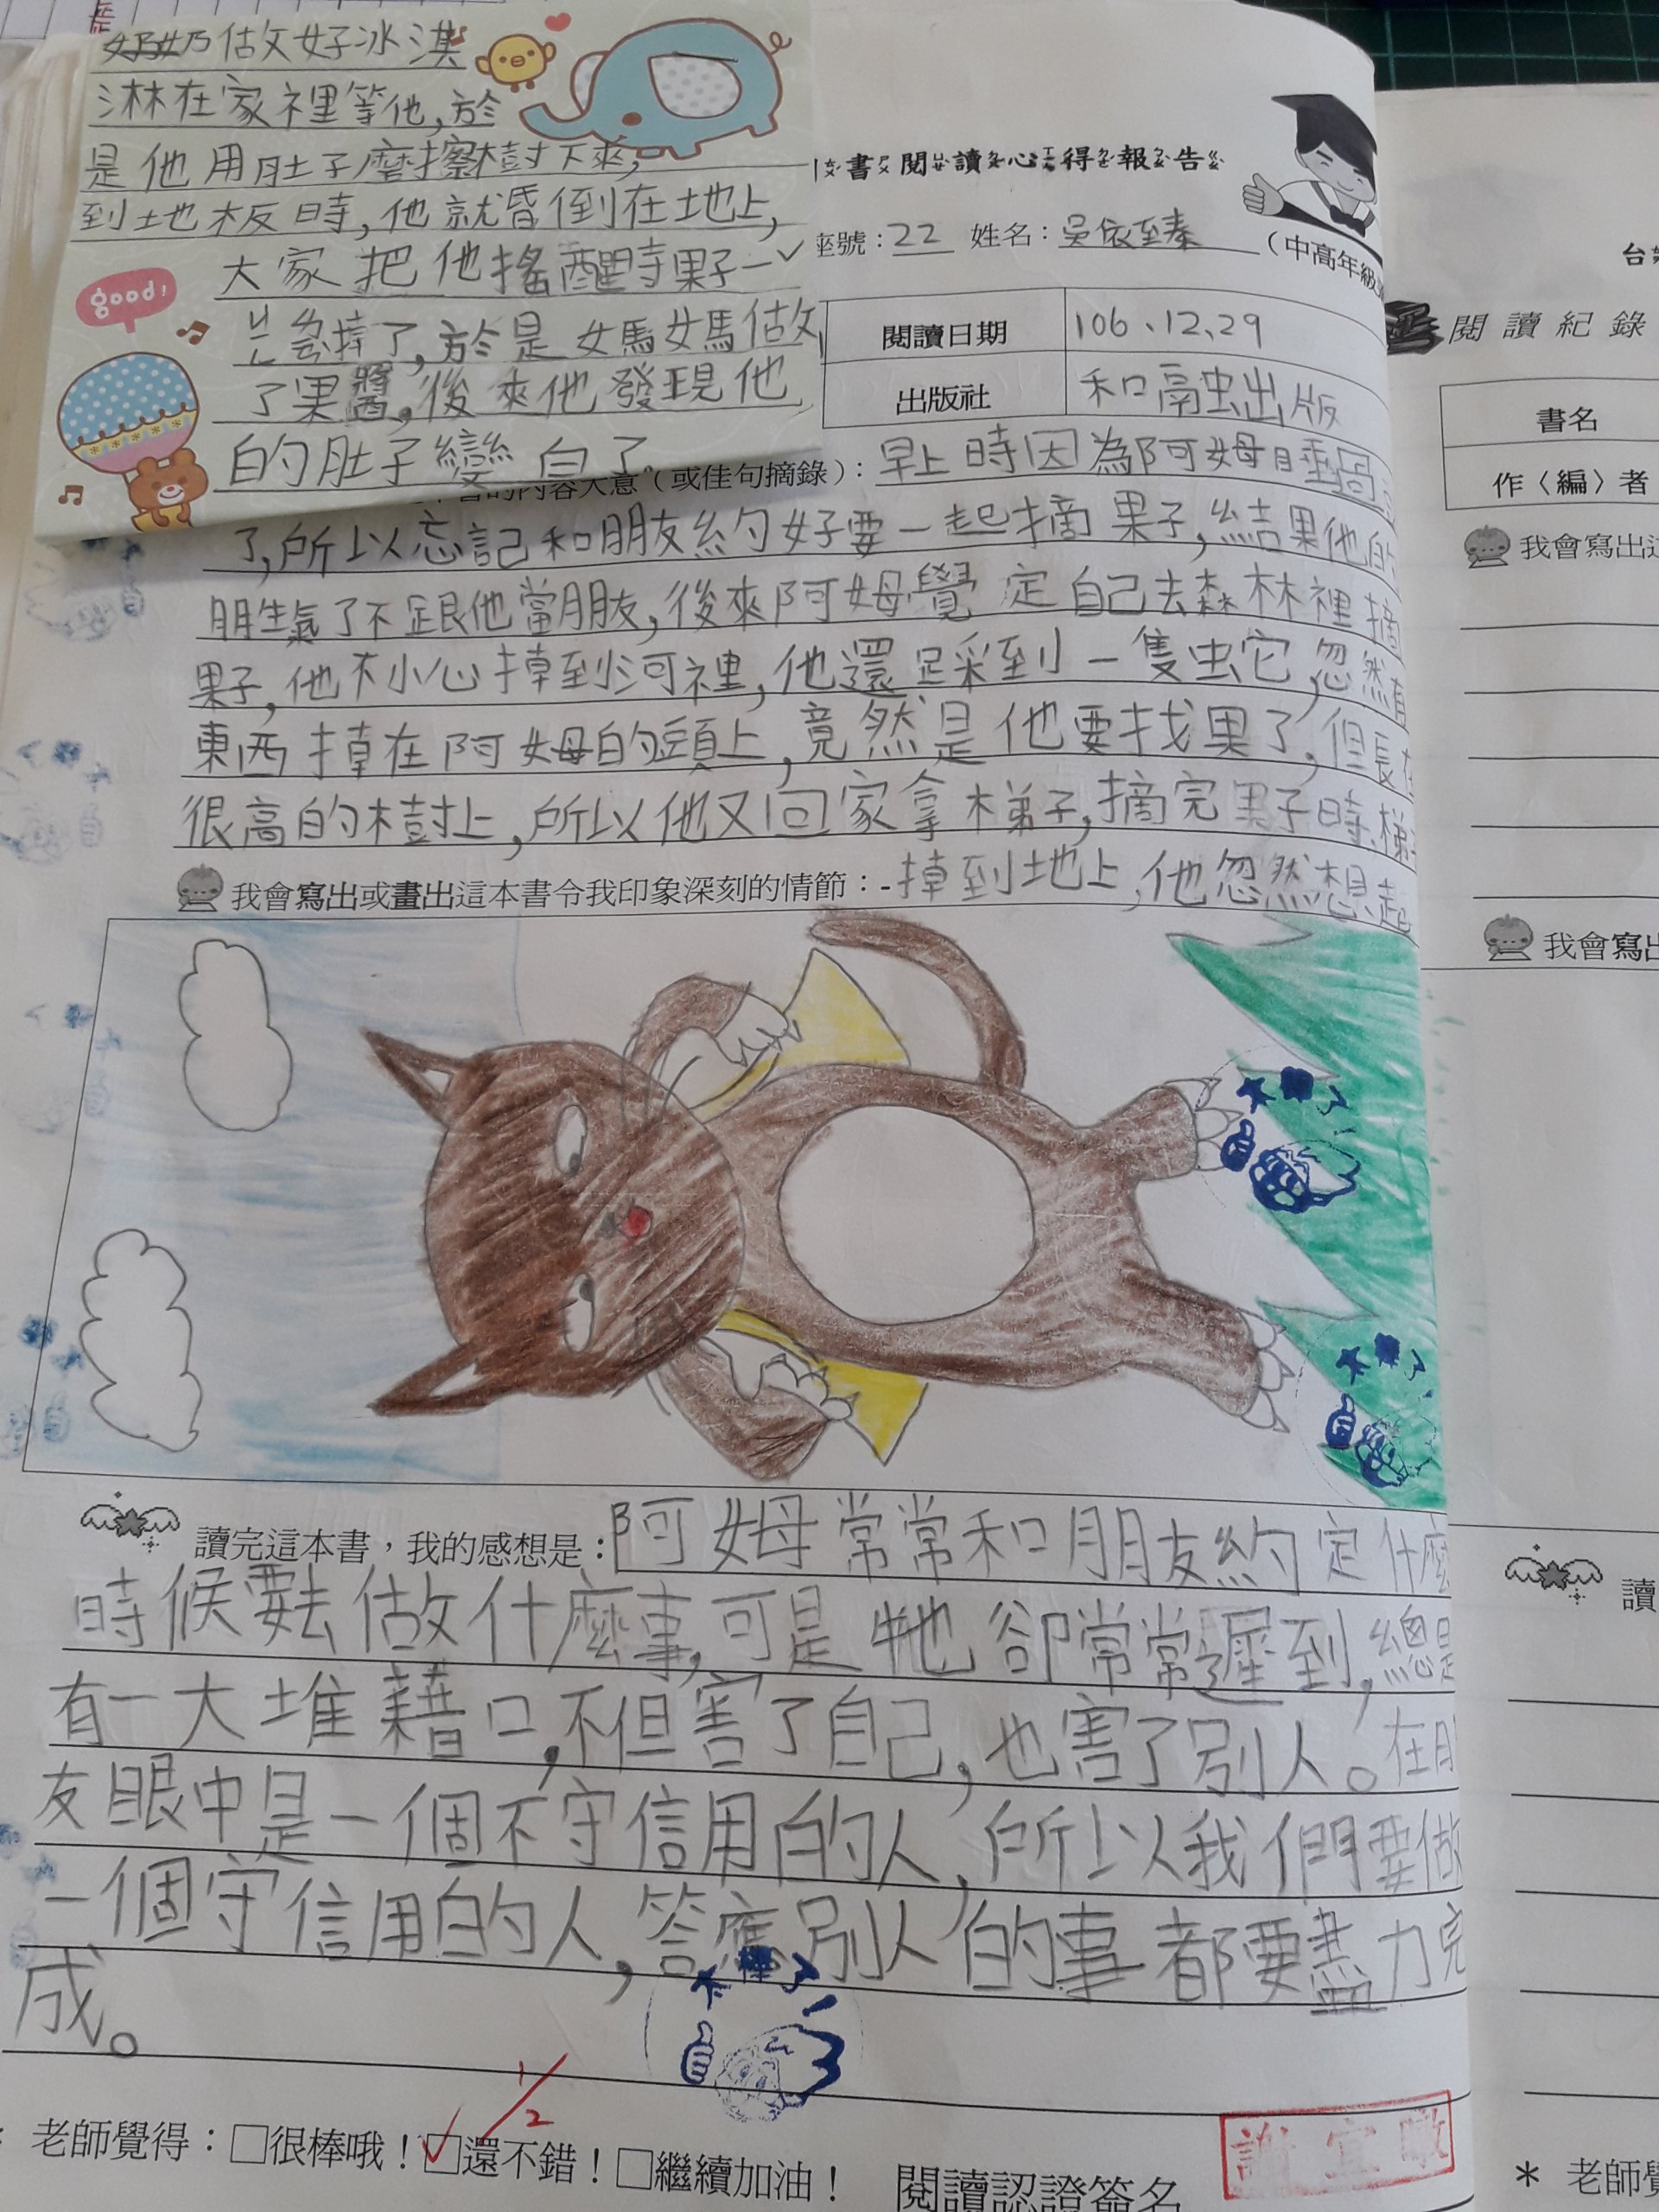 奶奶做好冰淇
淋在家裡等他,於
是他用肚子磨擦樹下來,
到地板時,他就昏倒在地上,
大家把他搖醒時果子一
good!
急掉了,於是媽媽做
了果醬,後來他發現他
的肚子變白了
書閱讀心得報告
座號:22 姓名:吳依臻
(中高年級
閱讀日期 106、12、29
出版社 和融出版
的內容大意(或佳句摘錄):早上時因為阿姆睡過
了,所以忘記和朋友約好要一起摘果子,結果他的
朋生氣了不跟他當朋友,後來阿姆覺定自己去森林裡摘
果子,他不小心掉到河裡,他還踩到一隻蛇,忽然有
東西掉在阿姆的頭上,竟然是他要找果了,但長在
很高的樹上,所以他又回家拿梯子,摘完果子時,梯
我會寫出或畫出這本書令我印象深刻的情節:-掉到地上,他忽然想起
太棒了
太棒了
讀完這本書,我的感想是:阿姆常常和朋友約定什麼
時候要去做什麼事,可是牠卻常常遲到,總是
有一大堆藉口,不但害了自己,也害了別人。在
友眼中是一個不守信用的人,所以我們要做
一個守信用的人,答應別人的事都要盡力完
成。
太棒了
1/2
老師覺得:□很棒哦!□還不錯!□繼續加油!
閱讀認證簽名
謝宜
閱讀紀錄
書名
作〈編〉者
我會寫出
我會寫出
讀
* 老師覺